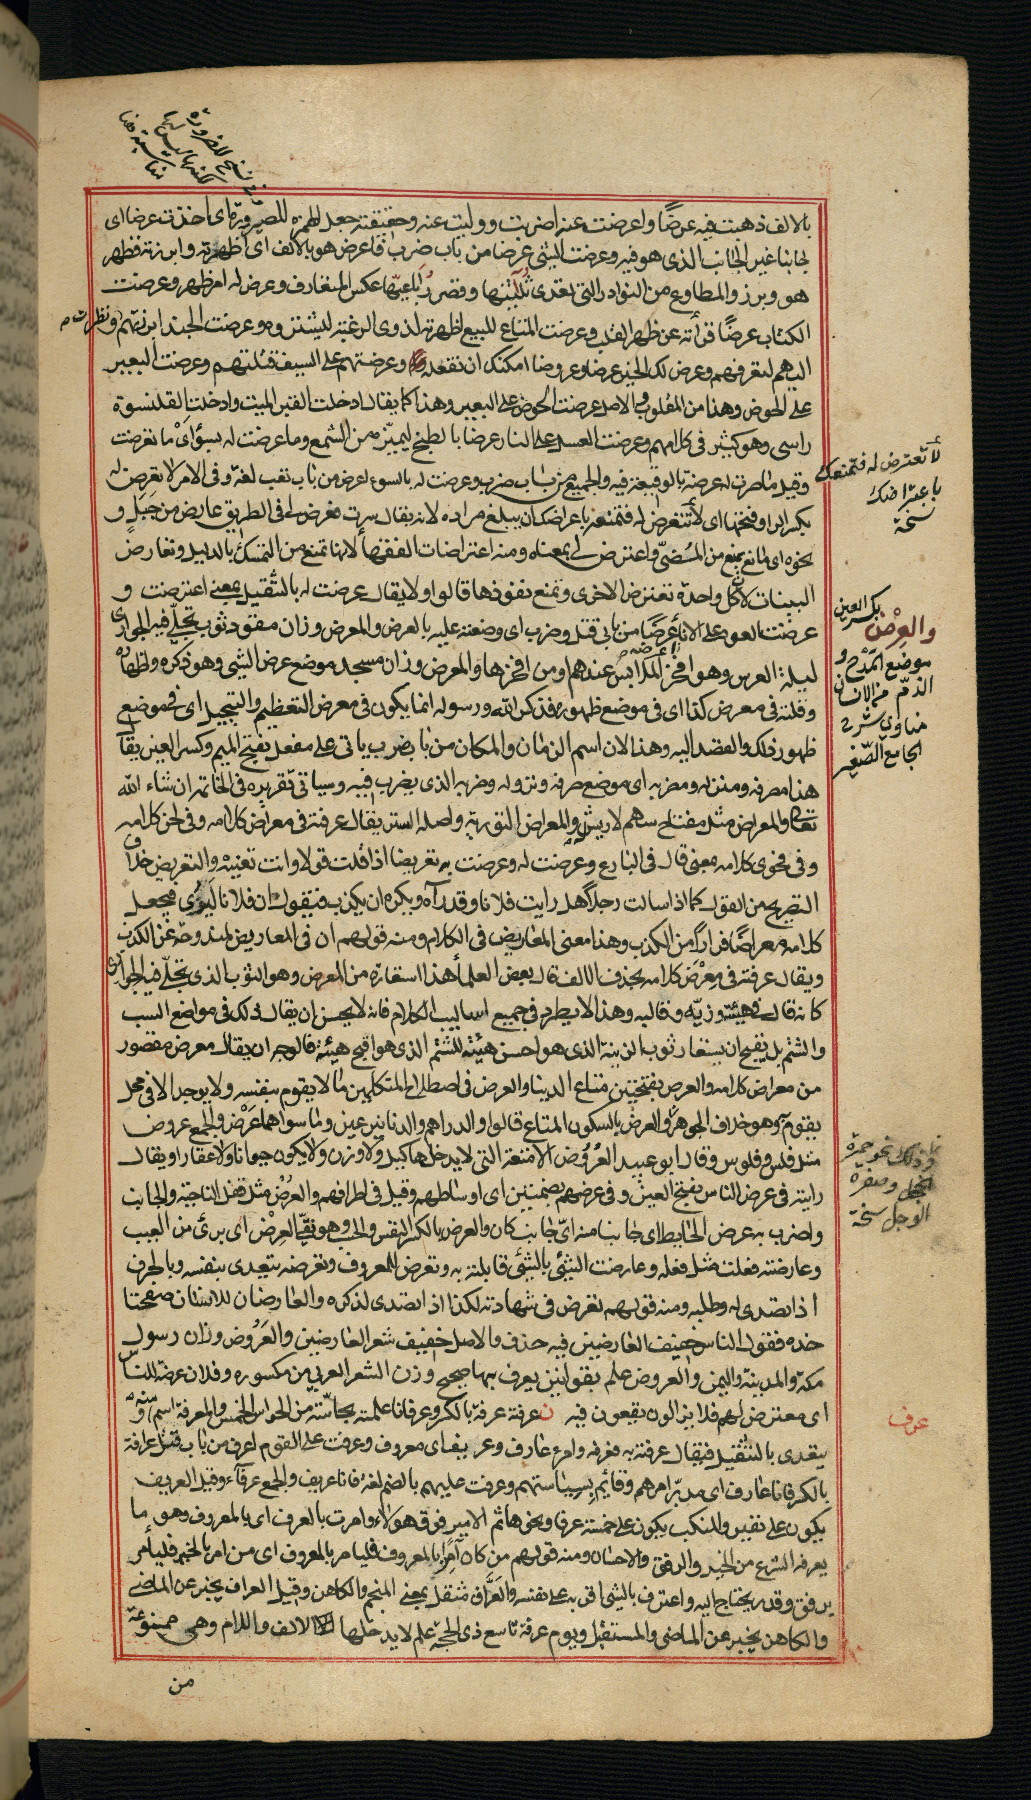 بالالف ذهبت فيه عرضًا واعرضت عنه اضربت ووليت عنه وحقيقته جعل الهمزة للصيرورة اى اخذت عرضا اى
جانبا غير الجانب الذى هو فيه وعرضت الشئ عرضا من باب ضرب فاعرض هو بالالف اى اظهرته وابرزته فظهر
هو وبرز والمطاوع من النوادر التى تعدى ثلاثيها وقصر رباعيها عكس المتعارف وعرض له امر ظهر وعرضت
الكتاب عرضًا قرأته عن ظهر القلب وعرضت المتاع للبيع اظهرته لذوى الرغبة ليشتروه وعرضت الجند ابرزتهم ونظرت
اليهم لتعرفهم وعرض لك الخير عرضا وعروضا امكنك ان تفعله وعرضتهم على السيف قتلتهم وعرضت البعير
على الحوض وهذا من المقلوب والاصل عرضت الحوض على البعير وهذا كما يقال ادخلت القبر الميت وادخلت القلنسوة
راسى وهو كثير فى كلامهم وعرضت العسل على النار عرضا بالطبخ ليميزه من الشمع وما عرضت له بسوء اى ما تعرضت
وقيل ما صرت له عرضة بالوقيعة فيه والجميع من باب ضرب وعرضت له بالسوء اعرض من باب تعب لغة وفى الامر لا تعرض له
بكسر الراء وفتحها اى لا تتعرض له فتمنعه باعتراضك ان يبلغ مراده لانه يقال سرت فعرض لى فى الطريق عارض من جبل و
نحوه اى مانع يمنع من المضى واعترض لى بمعناه ومنه اعتراضات الفقهاء لانها تمنع من التمسك بالدليل وتعارض
البينات لان كل واحدة تعترض الاخرى وتمنع نفوذها قالوا ولا يقال عرضت له بالتثقيل بمعنى اعترضت و
عرضت العود على الاناء عرضًا من بابى قتل وضرب اى وضعته عليه بالعرض والمعرض وزان مقود ثوب تجلّى فيه الجوارى
ليلة العرس وهو افخر الملابس عندهم او من افخرها والمعرض وزان مسجد موضع عرض الشئ وهو ذكره واظهاره
وقلته فى معرض كذا اى فى موضع ظهوره فذكر الله ورسوله انما يكون فى معرض التعظيم والتبجيل اى فى موضع
ظهور ذلك والقصد اليه وهذا لان اسم الزمان والمكان من باب ضرب ياتى على مفعل بفتح الميم وكسر العين يقال
هذا مصرفه ومنزله ومضربه اى موضع صرفه ونزوله وضربه الذى يضرب فيه وسياتى تقريره فى الخاتمة ان شاء الله
تعالى والمعراض مثل مفتاح سهم لا ريش له والمعراض التورية واصله الستر يقال عرفته فى معراض كلامه وفى لحن كلامه
وفى فحوى كلامه بمعنى قال فى البارع وعرضت له وعرضت به تعريضا اذا قلت قولا وانت تعنيه والتعريض خلاف
التصريح من القول كما اذا سالت رجلا هل رايت فلانا وقد رآه ويكره ان يكذب فيقول ان فلانا ليرى فيجعل
كلامه معراضًا فرارا من الكذب وهذا معنى المعاريض فى الكلام ومنه قولهم ان فى المعاريض لمندوحة عن الكذب
ويقال عرفته فى معرض كلامه بحذف الالف قال بعض العلماء هذا استعارة من المعرض وهو الثوب الذى تجلّى فيه الجوارى
كانه قال فى هيئته وزيّه وقالبه وهذا لا يطرد فى جميع اساليب الكلام فانه لا يحسن ان يقال ذلك فى مواضع السب
والشتم بل يقبح ان يستعار ثوب الزينة الذى هو احسن هيئة للشتم الذى هو اقبح هيئة فالوجه ان يقال معرض مقصور
من معراض كلامه والعرض بفتحتين متاع الدنيا والعرض فى اصطلاح المتكلمين ما لا يقوم بنفسه ولا يوجد الا فى محل
يقوم به وهو خلاف الجوهر والعرض بالسكون المتاع قالوا والدراهم والدنانير عين وما سواهما عرض والجمع عروض
مثل فلس وفلوس وقال ابو عبيد العروض الامتعة التى لا يدخلها كيل ولا وزن ولا يكون حيوانا ولا عقارا ويقال
رايته فى عرض الناس بفتح العين وفى عرضهم بضمتين اى اوساطهم وقيل فى اطرافهم والعرض مثل قفل الناحية والجانب
واضرب به عرض الحائط اى جانبا منه اىّ جانب كان والعرض بالكسر النفس والحسب وهو نقىّ العرض اى برئ من العيب
وعارضته فعلت مثل فعله وعارضت الشئ بالشئ قابلته به وتعرض للمعروف وتعرضه يتعدى بنفسه وبالحرف
اذا تصدى له وطلبه ومنه قولهم تعرض فى شهادته لكذا اذا تصدى لذكره والعارضان للانسان صفحتا
خده فقول الناس خفيف العارضين فيه حذف والاصل خفيف شعر العارضين والعَرُوض وزان رسول
مكة والمدينة واليمن والعروض علم بقوانين يعرف بها صحيح وزن الشعر العربى من مكسوره وفلان عرضة للناس
اى معترض لهم فلا يزالون يقعون فيه ن عرفته عرفة بالكسر وعرفانا علمته بحاسّة من الحواس الخمس والمعرفة اسم منه و
يتعدى بالتثقيل فيقال عرفته به فعرفه وامر عارف وعريف اى معروف وعرفت على القوم اعرف من باب قتل عرافة
بالكسر فانا عارف اى مدبّر امرهم وقائم بسياستهم وعرفت عليهم بالضم لغة فانا عريف والجمع عرفاء وقيل العريف
يكون على نفير والمنكب يكون على خمسة عرفا ونحوها ثم الامير فوق هؤلاء وامرت بالعرف اى بالمعروف وهو ما
يعرفه الشرع من الخير والرفق والاحسان ومنه قولهم من كان آمرا بالمعروف فليامر بالمعروف اى من امر بالخير فليأمر
برفق وقدر يحتاج اليه واعترف بالشئ اقر به على نفسه والعَرَّاف مثقل بمعنى المنجم والكاهن وقيل العراف يخبر عن الماضى
والكاهن يخبر عن الماضى والمستقبل ويوم عرفة تاسع ذى الحجة علم لا يدخلها الالف واللام وهى ممنوعة
من
لا تعترض له فتمنعك
باعتراضك
نسخة
والعِرْض بكسر العين
موضع المدح و
الذم من الانسان
مناوى شرح
الجامع الصغير
وذلك نحو حمرة
الخجل وصفرة
الوجل نسخة
عرف